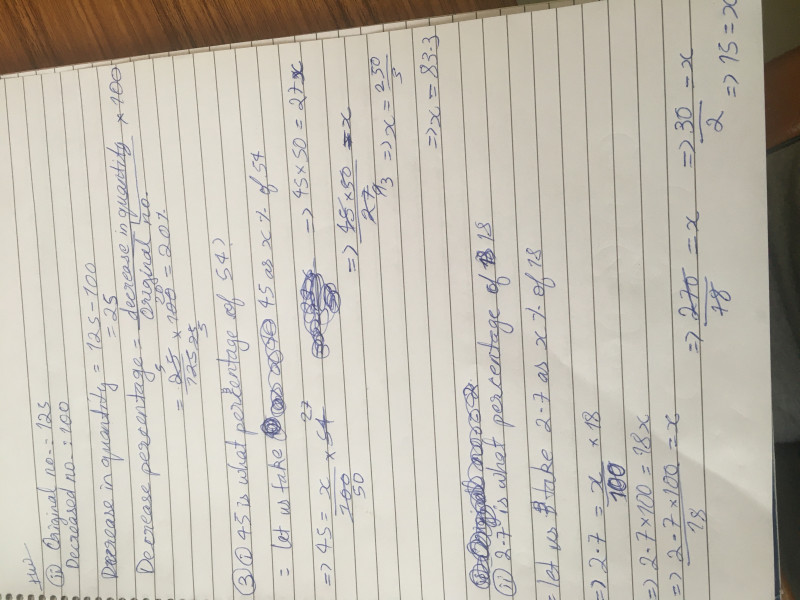 HW
(ii) Original no. = 125
Decreased no. = 100
Decrease in quantity = 125-100
= 25
Decrease percentage = decrease in quantity / Original no. × 100
= 25/125 × 100 = 20%
5 20
25 5
(3) (i) 45 is what percentage of 54)
= let us take 45 as x% of 54
=> 45 = x/100 × 54 => 45×50 = 27x
27
50
=> 45×50/27 = x
=> x = 250/3
=> x = 83.3
(ii) 2.7 is what percentage of 18
= let us take 2.7 as x% of 18
=> 2.7 = x/100 × 18
=> 2.7×100 = 18x
=> 2.7×100/18 = x => 270/18 = x => 30/2 = x
=> 15 = x